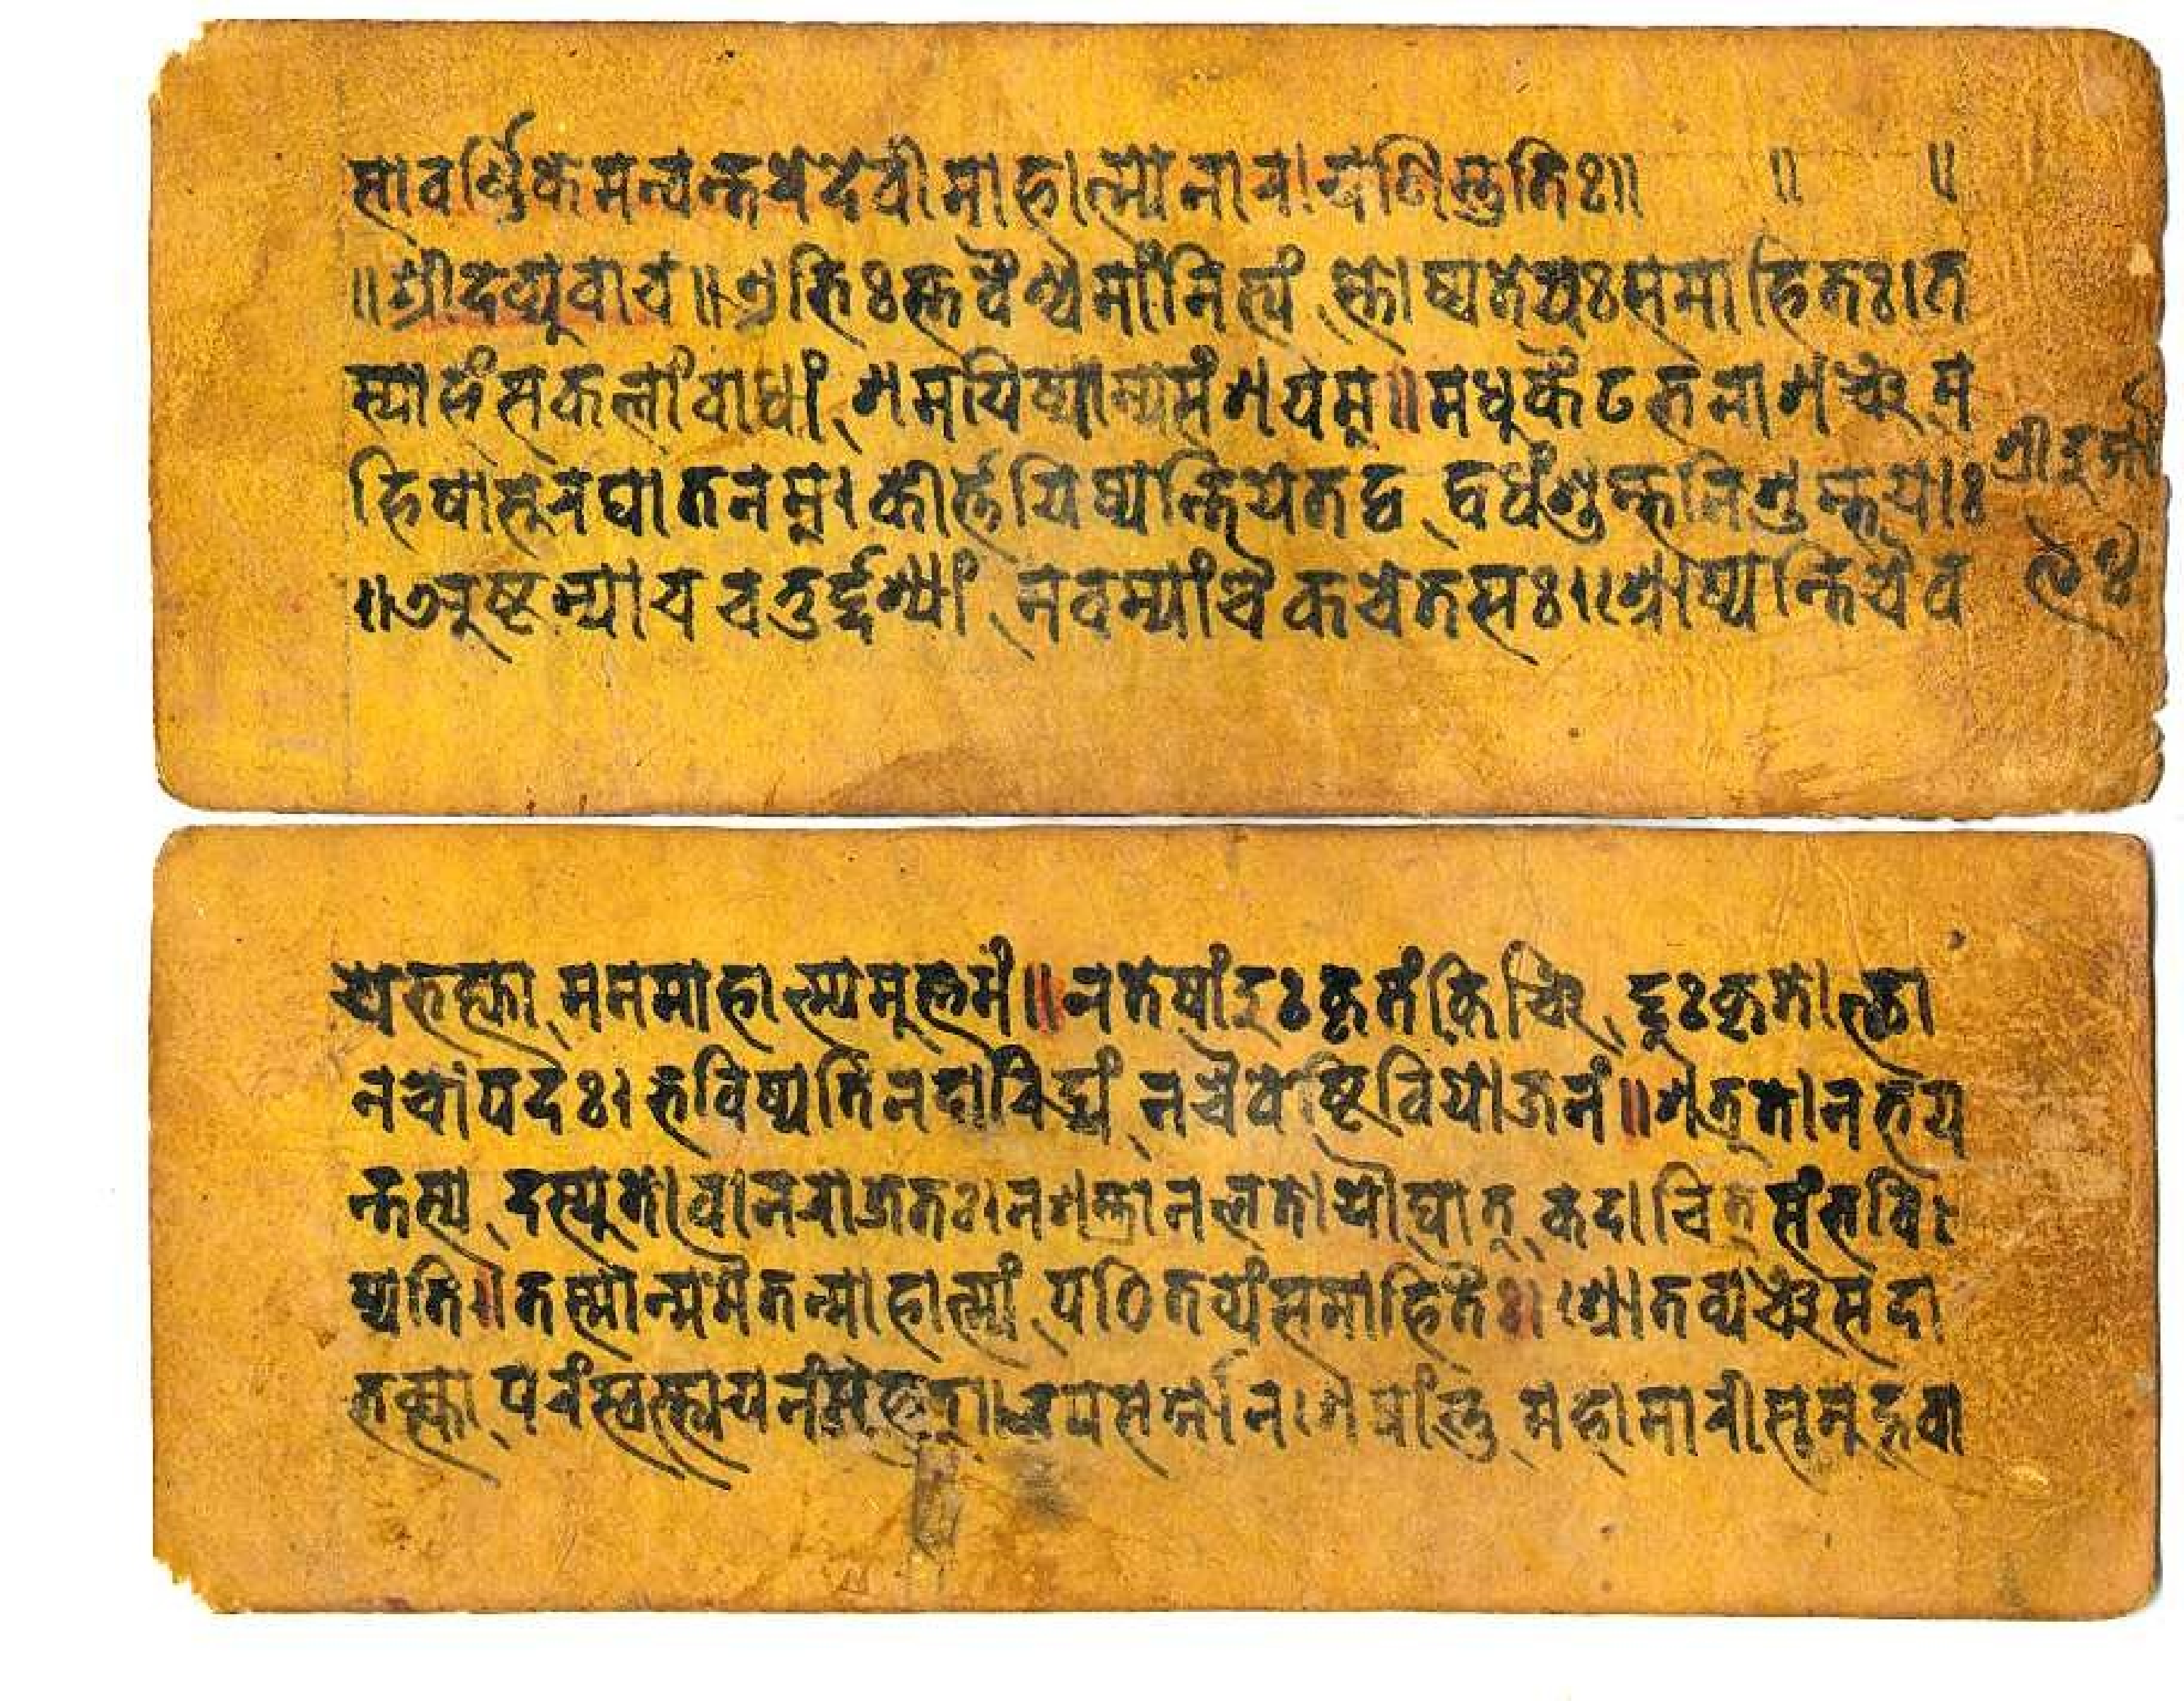 सावर्ण्णिकमन्वन्तरेदेवीमाहात्म्येनारायणिस्तुतिः॥ ॥ ॥
॥श्रीदेव्युवाच॥एभिःस्तवैश्चमांनित्यं स्तोष्यतेयःसमाहितः।त
स्याहंसकलांवाधां शमयिष्याम्यसंशयम्॥मधुकैटभनाशञ्च म
हिषासुरघातनम्।कीर्त्तयिष्यन्तियेतद्व द्वधंशुम्भनिशुम्भयोः
॥अष्टम्याञ्च चतुर्द्दश्यां नवम्यांचैकचेतसः।श्रोष्यन्तिचैव
श्री दुर्गा
९४
येभक्त्या ममममाहात्म्यमुत्तमं॥नतेषांदुःकृतंकिञ्चि द्दुःकृतोत्था
नचापदः।भविष्यतिनदारिद्र्यं नचैवेष्टवियोजनं॥शत्रुतोनभय
न्तस्य दस्युतोवानराजतः।नशस्त्रानलतोयौघात् कदाचित् संभवि
ष्यति॥तस्मान्ममैतन्माहात्म्यं पठितव्यंसमाहितैः।श्रोतव्यञ्चसदा
भक्त्या परंस्वस्त्ययनंमहत्॥उपसर्गान।शेषांस्तु महामारीसमुद्भवा